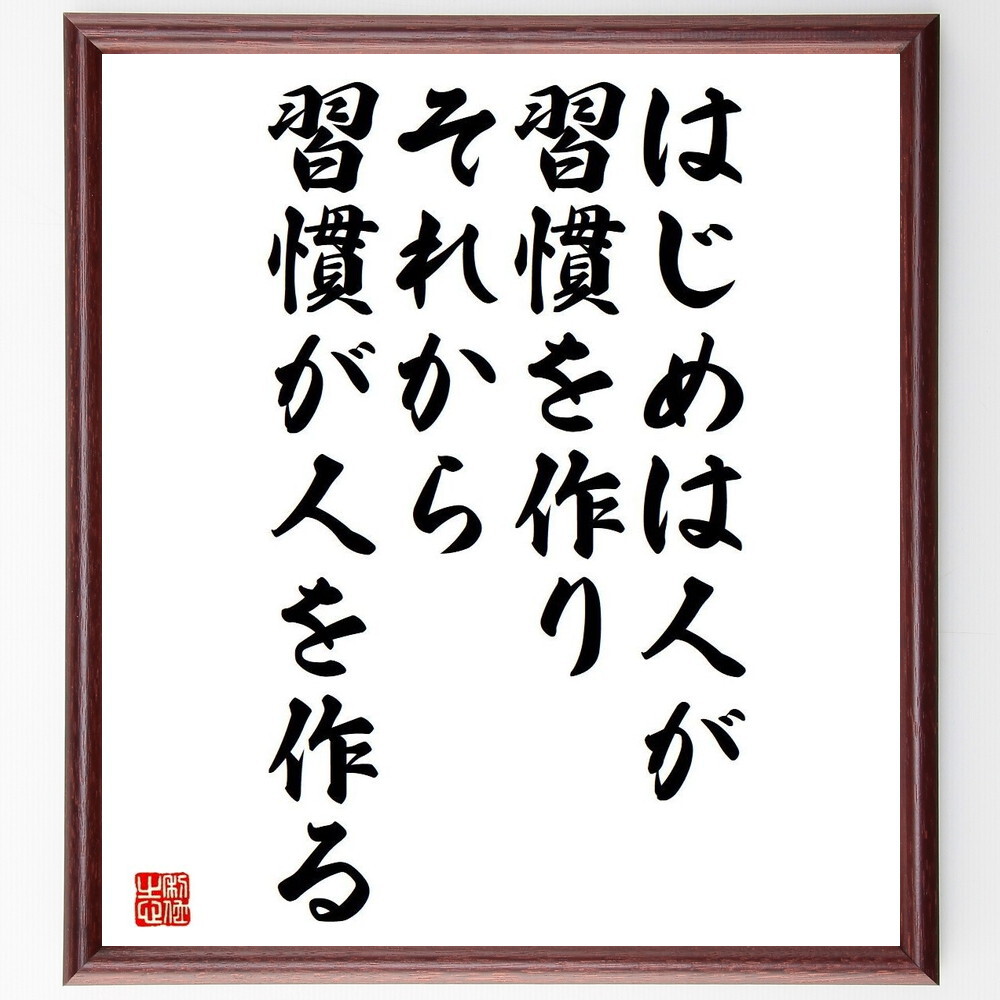 はじめは人が
習慣を作り
それから
習慣が人を作る